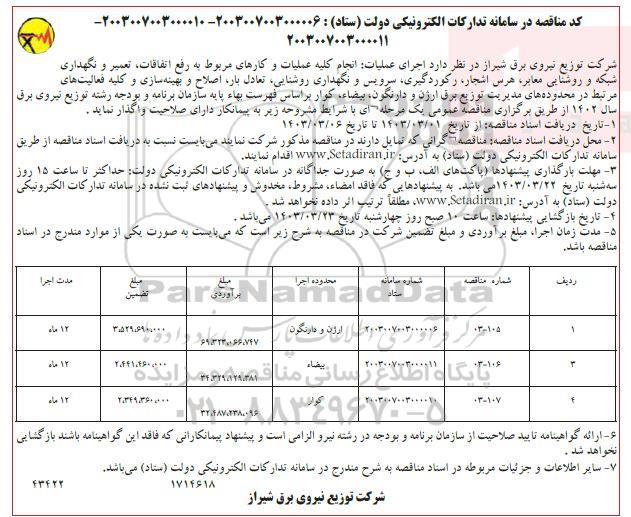 کد مناقصه در سامانه تدارکات الکترونیکی دولت (ستاد) : ۲۰۰۳۰۰۷۰۰۳۰۰۰۰۰۶- ۲۰۰۳۰۰۷۰۰۳۰۰۰۰۱۰-
۲۰۰۳۰۰۷۰۰۳۰۰۰۰۱۱
شرکت توزیع نیروی برق شیراز در نظر دارد اجرای عملیات: انجام کلیه عملیات و کارهای مربوط به رفع اتفاقات، تعمیر و نگهداری
شبکه و روشنایی معابر، هرس اشجار، رکوردگیری، سرویس و نگهداری روشنایی، تعادل بار، اصلاح و بهینه‌سازی و کلیه فعالیت‌های
مرتبط در محدوده‌های مدیریت توزیع برق ارژن و دارنگون، بیضاء، کوار بر اساس فهرست بهاء پایه سازمان برنامه و بودجه رشته توزیع نیروی برق
سال ۱۴۰۲ از طریق برگزاری مناقصه عمومی یک مرحله ای با شرایط مشروحه زیر به پیمانکار دارای صلاحیت واگذار نماید .
۱-تاریخ دریافت اسناد مناقصه: از تاریخ ۱۴۰۳/۰۳/۰۱ تا تاریخ ۱۴۰۳/۰۳/۰۶
۲- محل دریافت اسناد مناقصه: مناقصه گرانی که تمایل دارند در مناقصه مذکور شرکت نمایند می‌بایست نسبت به دریافت اسناد مناقصه از طریق
سامانه تدارکات الکترونیکی دولت (ستاد) به آدرس: www.Setadiran.ir اقدام نمایند.
۳- مهلت بارگذاری پیشنهادها (پاکت‌های الف، ب و ج) به صورت جداگانه در سامانه تدارکات الکترونیکی دولت: حداکثر تا ساعت ۱۵ روز
سه‌شنبه تاریخ ۱۴۰۳/۰۳/۲۲ می‌باشد. به پیشنهادهایی که فاقد امضاء، مشروط، مخدوش و پیشنهادهای ثبت نشده در سامانه تدارکات الکترونیکی
دولت (ستاد) به آدرس: www.Setadiran.ir، مطلقاً ترتیب اثر داده نخواهد شد .
۴- تاریخ بازگشایی پیشنهادها: ساعت ۱۰ صبح روز چهارشنبه تاریخ ۱۴۰۳/۰۳/۲۳ می‌باشد .
۵- مدت زمان اجرا، مبلغ برآوردی و مبلغ تضمین شرکت در مناقصه به شرح زیر است که می‌بایست به صورت یکی از موارد مندرج در اسناد
مناقصه باشد.
ردیف شماره مناقصه شماره سامانه ستاد محدوده اجرا مبلغ برآوردی مبلغ تضمین مدت اجرا
۱ ۰۳-۱۰۵ ۲۰۰۳۰۰۷۰۰۳۰۰۰۰۰۶ ارژن و دارنگون ۶۹،۳۲۳،۰۶۶،۷۴۷ ۳،۵۲۹،۶۹۰،۰۰۰ ۱۲ ماه
۳ ۰۳-۱۰۶ ۲۰۰۳۰۰۷۰۰۳۰۰۰۰۱۱ بیضاء ۳۴،۳۲۹،۱۲۹،۳۸۱ ۲،۴۴۱،۴۶۰،۰۰۰ ۱۲ ماه
۴ ۰۳-۱۰۷ ۲۰۰۳۰۰۷۰۰۳۰۰۰۰۱۰ کوار ۳۲،۴۸۷،۲۳۸،۰۹۶ ۲،۳۴۹،۳۶۰،۰۰۰ ۱۲ ماه
ParsNamadData
مرکز فرآوری اطلاعات پارس نماد داده ها
پایگاه اطلاع رسانی مناقصه و مزایده
۰۲۱-۸۸۳۴۹۶۷۰-۵
۶- ارائه گواهینامه تایید صلاحیت از سازمان برنامه و بودجه در رشته نیرو الزامی است و پیشنهاد پیمانکارانی که فاقد این گواهینامه باشند بازگشایی
نخواهد شد .
۷- سایر اطلاعات و جزئیات مربوطه در اسناد مناقصه به شرح مندرج در سامانه تدارکات الکترونیکی دولت (ستاد) می‌باشد.
۱۷۱۴۶۱۸ ۴۳۴۲۲
شرکت توزیع نیروی برق شیراز